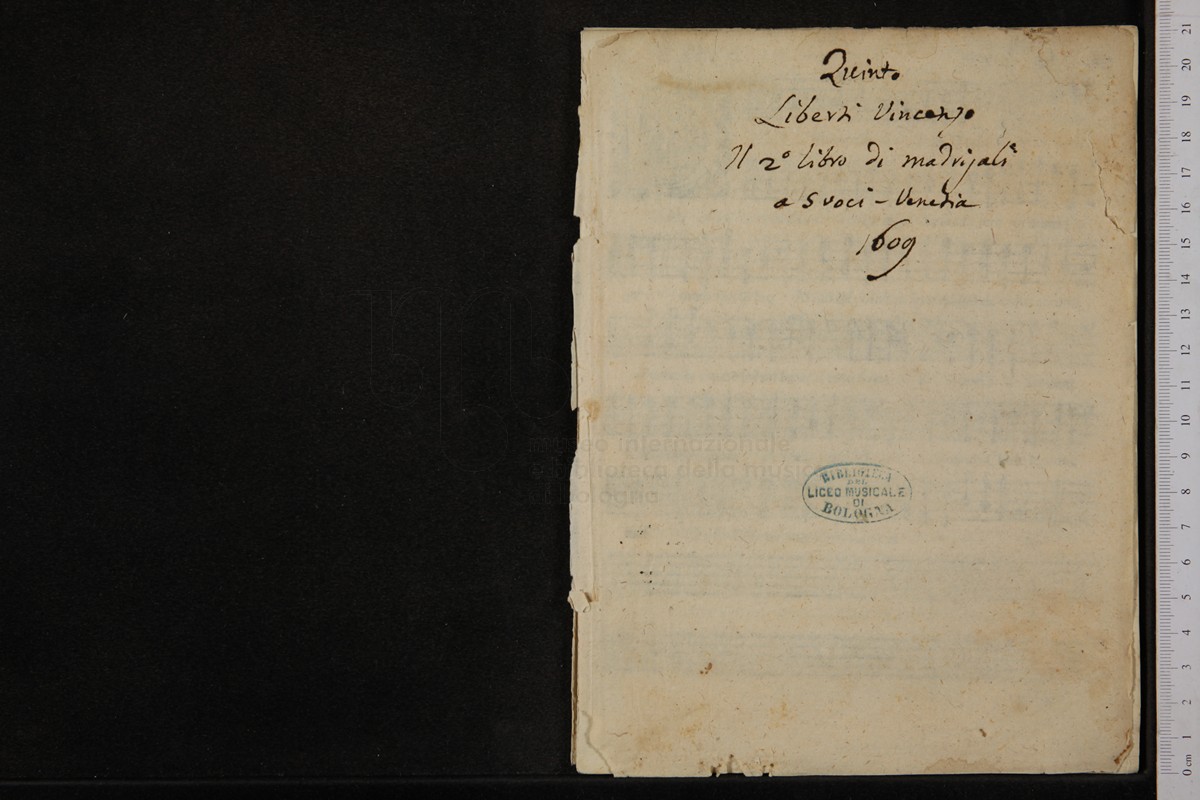 Quinto
Liberti Vincenzo
Il 2º libro di madrigali
a 5 voci - Venezia
1609
museo internazionale
e biblioteca della musica
di bologna
BIBLIOTECA
DEL
LICEO MUSICALE
DI
BOLOGNA
21
20
19
18
17
16
15
14
13
12
11
10
9
8
7
6
5
4
3
2
1
0 cm